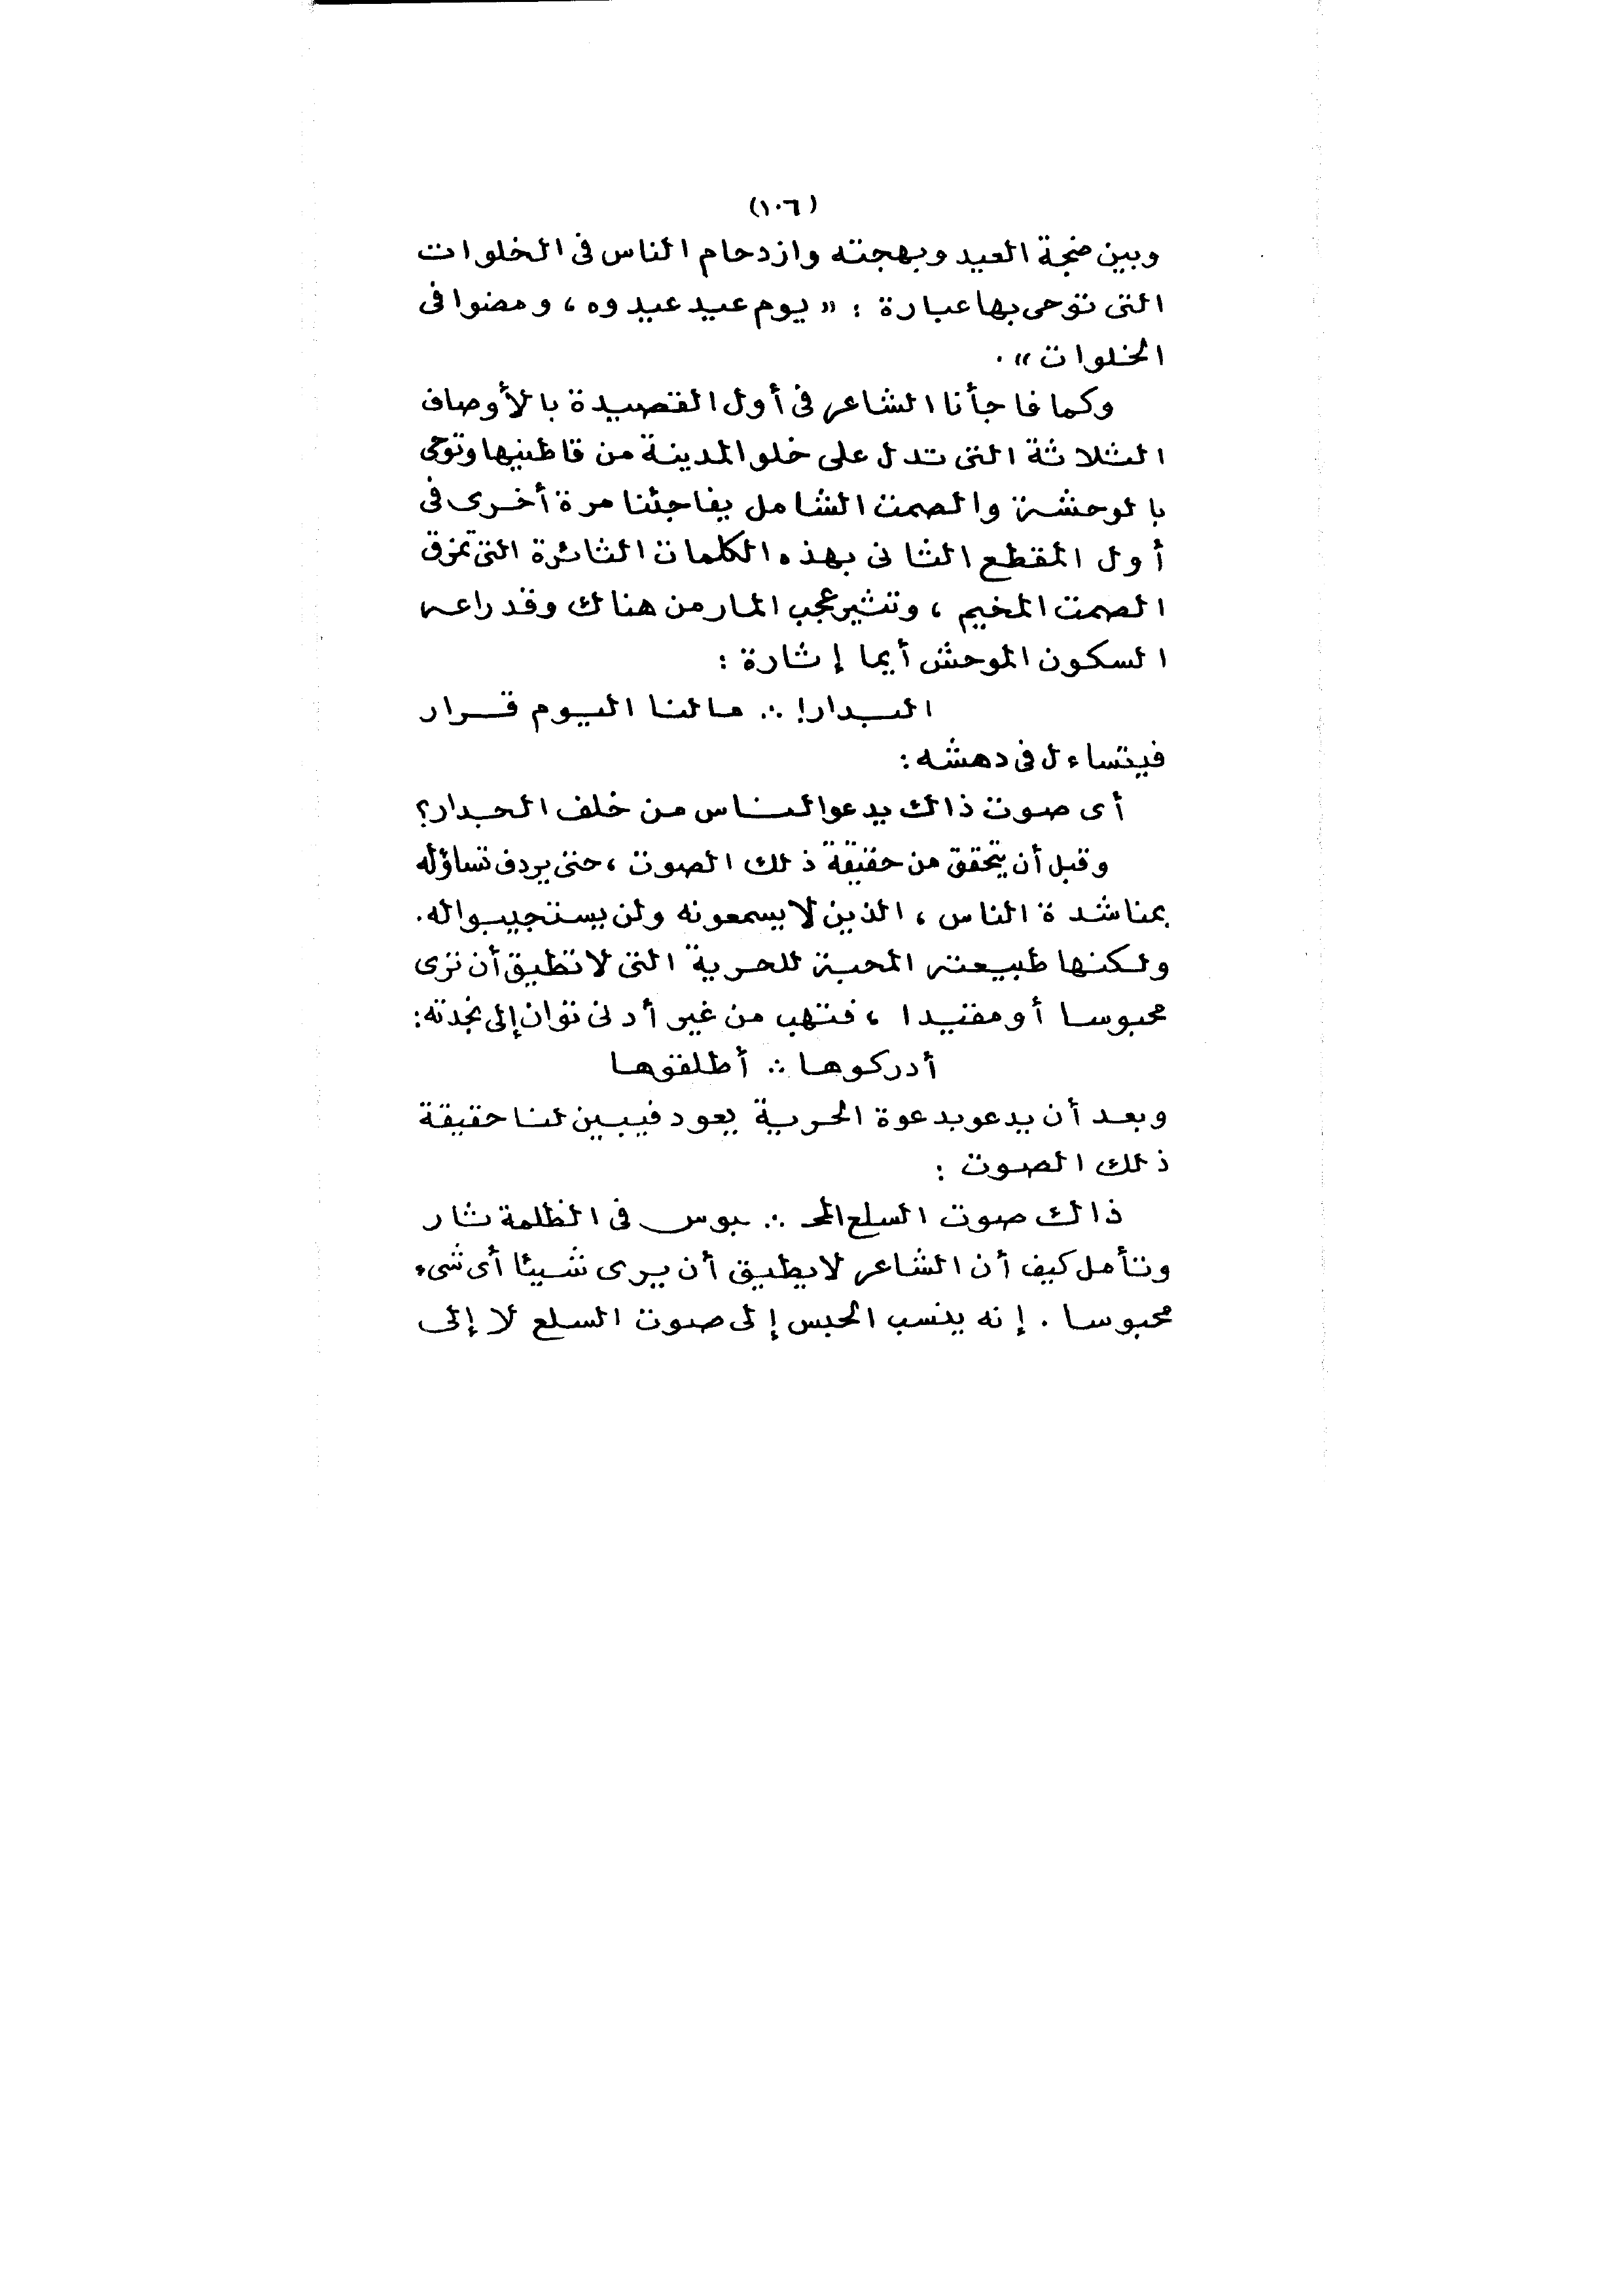 (١٠٦)
وبين ضجة العيد وبهجته وازدحام الناس فى الخلوات
التى توحى بها عبارة : « يوم عيد عيدوه ، ومضوا فى
الخلوات » .
وكما فاجأنا الشاعر فى أول القصيدة بالأوصاف
الثلاثة التى تدل على خلو المدينة من قاطنيها وتوحى
بالوحشة والصمت الشامل يفاجئنا مرة أخرى فى
أول المقطع الثانى بهذه الكلمات الثائرة التى تمزق
الصمت المخيم ، وتثير عجب المار من هناك وقد راعه
السكون الموحش أيما إثارة :
البدار! ∴ مالنا اليوم قرار
فيتساءل فى دهشه :
أى صوت ذاك يدعو الناس من خلف الجدار؟
وقبل أن يتحقق من حقيقة ذلك الصوت ، حتى يردف تساؤله
بمناشدة الناس ، الذين لا يسمعونه ولن يستجيبوا له .
ولكنها طبيعته المحبة للحرية التى لا تطيق أن ترى
محبوسا أو مقيدا ، فتهب من غير أدنى توان إلى نجدته :
أدركوها ∴ أطلقوها
وبعد أن يدعو بدعوة الحرية يعود فيبين لنا حقيقة
ذلك الصوت :
ذاك صوت السلع المحـ ∴ ـبوس فى الظلمة ثار
وتأمل كيف أن الشاعر لا يطيق أن يرى شيئا أى شىء
محبوسا . إنه ينسب الحبس إلى صوت السلع لا إلى